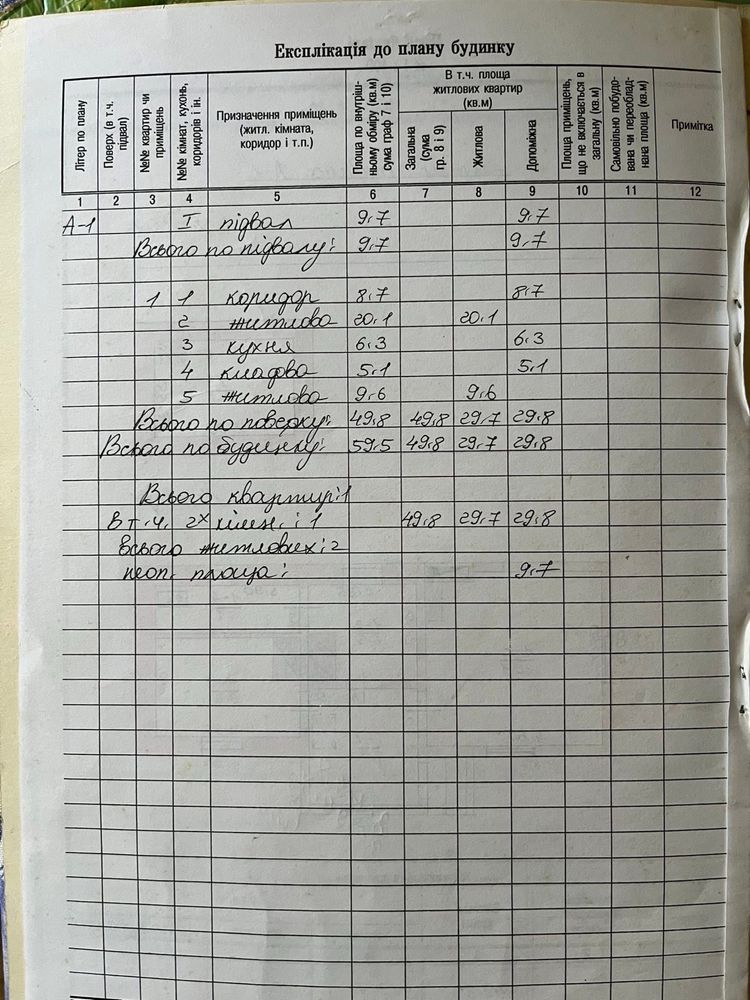 Експлікація до плану будинку
Літер по плану
Поверх, (в т.ч. підвал)
№№ квартир чи приміщень
№№ кімнат, кухонь, коридорів і ін.
Призначення приміщень (житл. кімната, коридор і т.п.)
Площа по внутріш-ньому обміру (кв.м) сума граф 7 і 10)
В т.ч. площа житлових квартир (кв.м)
Загальна (сума гр. 8 і 9)
Житлова
Допоміжна
Площа приміщень, що не включається в загальну (кв.м)
Самовільно побудо-вана чи переоблад-нана площа (кв.м)
Примітка
1 2 3 4 5 6 7 8 9 10 11 12
А-1 I підвал 9,7 9,7
Всього по підвалу: 9,7 9,7
1 1 коридор 8,7 8,7
2 житлова 20,1 20,1
3 кухня 6,3 6,3
4 кладова 5,1 5,1
5 житлова 9,6 9,6
Всього по поверху: 49,8 49,8 29,7 29,8
Всього по будинку: 59,5 49,8 29,7 29,8
Всього квартир: 1
в т.ч. 2х кімн. : 1 49,8 29,7 29,8
всього житлових: 2
неоп. площа: 9,7